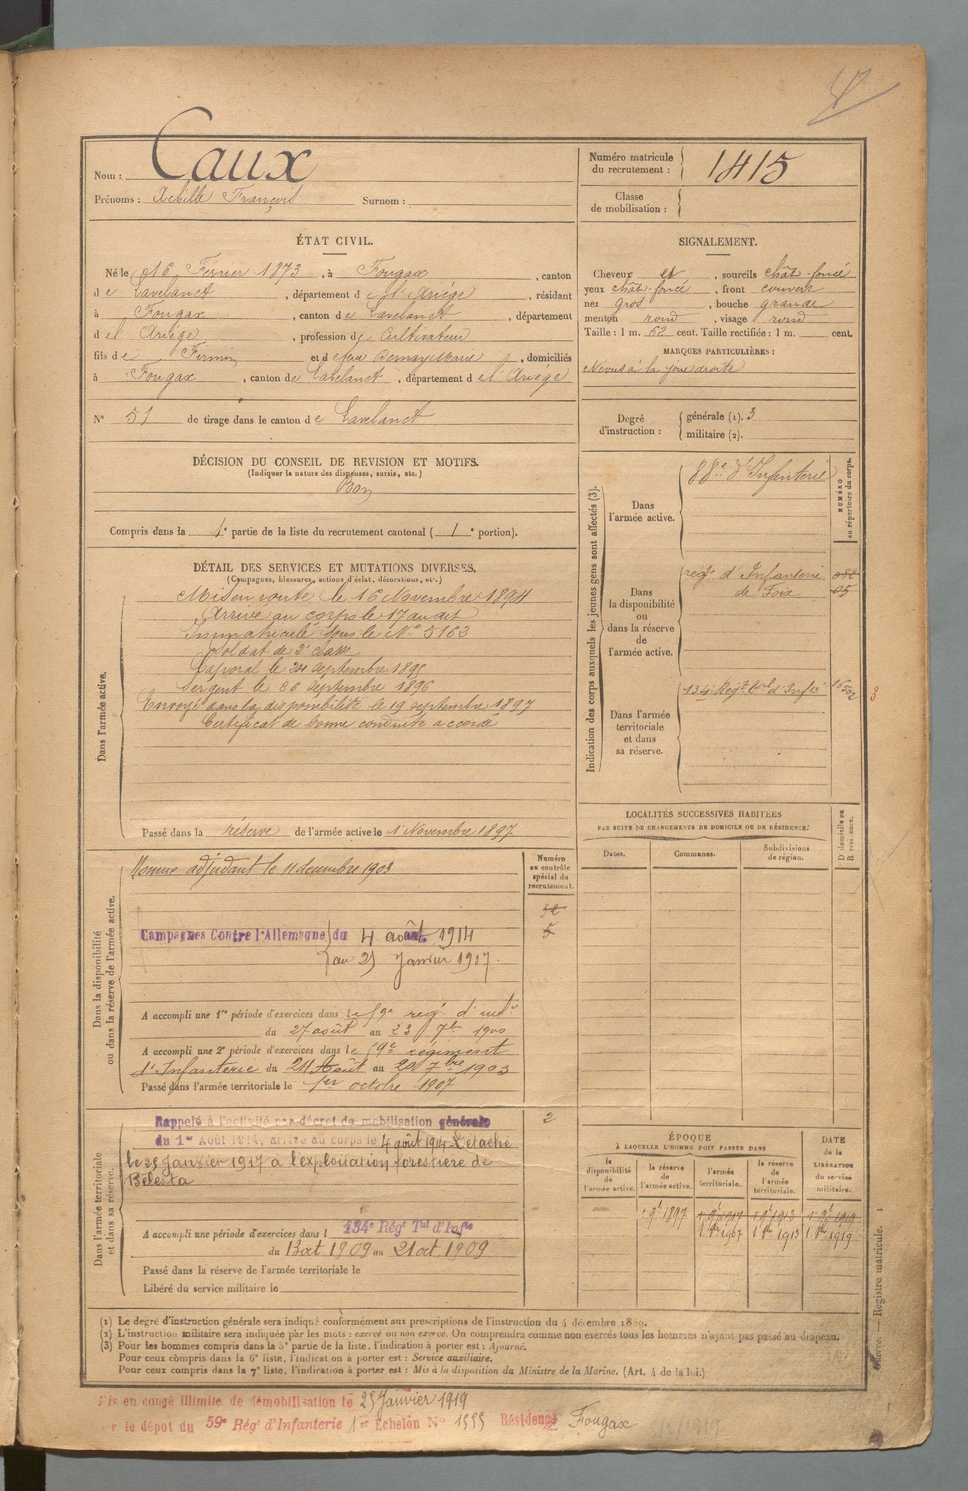 Nom : Caux
Prénoms : Achille François Surnom :
Numéro matricule
du recrutement : 1415
Classe
de mobilisation :
ÉTAT CIVIL.
Né le 16 Février 1873, à Fougax, canton
de Lavelanet, département de l'Ariège, résidant
à Fougax, canton de Lavelanet, département
de l'Ariège, profession de Cultivateur
fils de Firmin et de feue , domiciliés
à Fougax, canton de Lavelanet, département de l'Ariège
N° 51 de tirage dans le canton de Lavelanet
SIGNALEMENT.
Cheveux et, sourcils chât. foncé
yeux chât. foncé, front couvert
nez gros, bouche grande
menton rond, visage rond
Taille : 1 m. 62 cent. Taille rectifiée : 1 m. cent.
MARQUES PARTICULIÈRES :
Nevus à la joue droite
Degré
d'instruction :
générale (1). 3
militaire (2).
DÉCISION DU CONSEIL DE REVISION ET MOTIFS.
(Indiquer la nature des dispenses, sursis, etc.)
Bon
Compris dans la 1e partie de la liste du recrutement cantonal (1e portion).
DÉTAIL DES SERVICES ET MUTATIONS DIVERSES.
(Campagnes, blessures, actions d'éclat, décorations, etc.)
Dans l'armée active.
Mis en route le 16 Novembre 1894
Arrivé au corps le 17 au dit
Immatriculé sous le N° 5163
Soldat de 2e classe
Caporal le 24 septembre 1895
Sergent le septembre 1896
Envoyé dans la disponibilité le 19 septembre 1897
Certificat de bonne conduite accordé
Passé dans la réserve de l'armée active le 1 Novembre 1897
Indication des corps auxquels les jeunes gens sont affectés (3).
NUMÉRO
au répertoire du corps.
Dans
l'armée active.
88e d'Infanterie
Dans
la disponibilité
ou
dans la réserve
de
l'armée active.
regt d'Infanterie
de Foix
Dans l'armée
territoriale
et dans
sa réserve.
134 Régt tal d'Infie
LOCALITÉS SUCCESSIVES HABITÉES
PAR SUITE DE CHANGEMENTS DE DOMICILE OU DE RÉSIDENCE.
D domicile ou
R résidence.
Dates.
Communes.
Subdivisions
de région.
Dans la disponibilité
ou dans la réserve de l'armée active.
Numéro
au contrôle
spécial du
recrutement.
Nommé adjudant le 11 décembre 1903
Campagnes Contre l'Allemagne du 4 août 1914
au 25 Janvier 1917.
A accompli une 1re période d'exercices dans le 59e rég. d'infie
du 27 août au 23 7bre 1900
A accompli une 2e période d'exercices dans le 59e régiment
d'Infanterie du 24 Août au 20 7bre 1903
Passé dans l'armée territoriale le 1er octobre 1907
Dans l'armée territoriale
et dans sa réserve.
Rappelé à l'activité par décret de mobilisation générale 2
du 1er Août 1914, arrivé au corps le 4 août 1914 Détaché
le 25 Janvier 1917 à l'exploitation forestière de
Bélesta
A accompli une période d'exercices dans l 134e Régt Tal d'Infie
du 13 oct 1909 au 21 oct 1909
Passé dans la réserve de l'armée territoriale le
Libéré du service militaire le
ÉPOQUE
À LAQUELLE L'HOMME DOIT PASSER DANS
la
disponibilité
de
l'armée active.
la réserve
de
l'armée active.
l'armée
territoriale.
la réserve
de
l'armée
territoriale.
DATE
de la
LIBÉRATION
du service
militaire.
1 9e 1897
1 8bre 1907 1 8bre 1913 1 8bre 1919
(1) Le degré d'instruction générale sera indiqué conformément aux prescriptions de l'instruction du 4 décembre 1889.
(2) L'instruction militaire sera indiquée par les mots : exercé ou non exercé. On comprendra comme non exercés tous les hommes n'ayant pas passé au drapeau.
(3) Pour les hommes compris dans la 5e partie de la liste, l'indication à porter est : Ajourné.
Pour ceux compris dans la 6e liste, l'indication à porter est : Service auxiliaire.
Pour ceux compris dans la 7e liste, l'indication à porter est : Mis à la disposition du Ministre de la Marine. (Art. 4 de la loi.)
Registre matricule.
is en congé illimité de démobilisation le 25 Janvier 1919
r le dépôt du 59e Régt d'Infanterie 1er Échelon N° 1555 Résidence Fougax